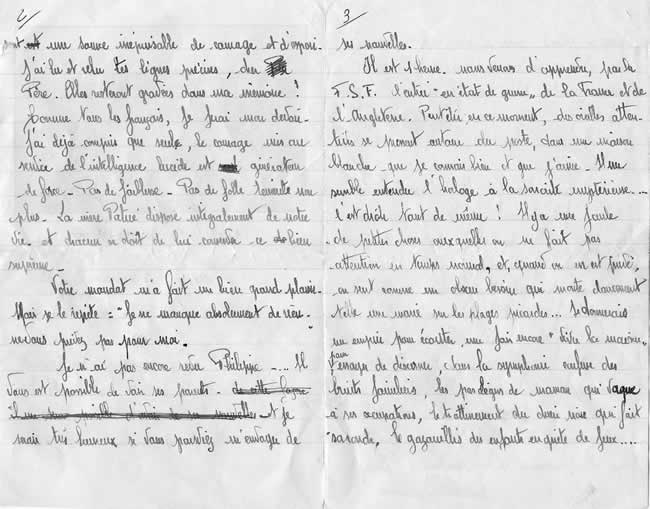 2/
sont une source inépuisable de courage et d'espoir.
J'ai lu et relu tes lignes précises, cher
Père. Elles resteront gravées dans ma mémoire !
Comme tous les français, je ferai mon devoir.
J'ai déjà compris que seul, le courage mis au
service de l'intelligence lucide est générateur
de force. Pas de faiblesse. Pas de folle témérité non
plus. La mère Patrie dispose intégralement de notre
vie. et chacun se doit de lui consentir ce bien
suprême.
Votre mandat m'a fait un bien grand plaisir.
Mais je le répète : "Je ne manque absolument de rien.
ne vous privez pas pour moi.
Je n'ai pas encore revu Philippe .... Il
vous est possible de voir ses parents. de cette façon
et je
serais très heureux si vous pouviez m'envoyer de
3/
ses nouvelles.
Il est 1 heure. nous venons d'apprendre, par la
T.S.F. l'entrée "en état de guerre" de la France et de
l'Angleterre. Peut-être en ce moment, des oreilles atten-
tives se pressent autour du poste, dans une maison
blanche que je connais bien et que j'aime. Il me
semble entendre l'horloge à la sonorité mystérieuse....
C'est drôle tout de même ! Il y a une foule
de petites choses auxquelles on ne fait pas
attention en temps normal, et, quand on en est privé,
on sent comme un obscur besoin qui monte doucement
telle une marée sur les plages picardes... Je donnerais
un empire pour écouter une fois encore "
pour essayer de discerner, dans la symphonie confuse des
bruits familiers, les pas légers de maman qui vaque
à ses occupations, le trottinement du qui fait
sa ronde, le gazouillis des enfants en quête de jeux.....